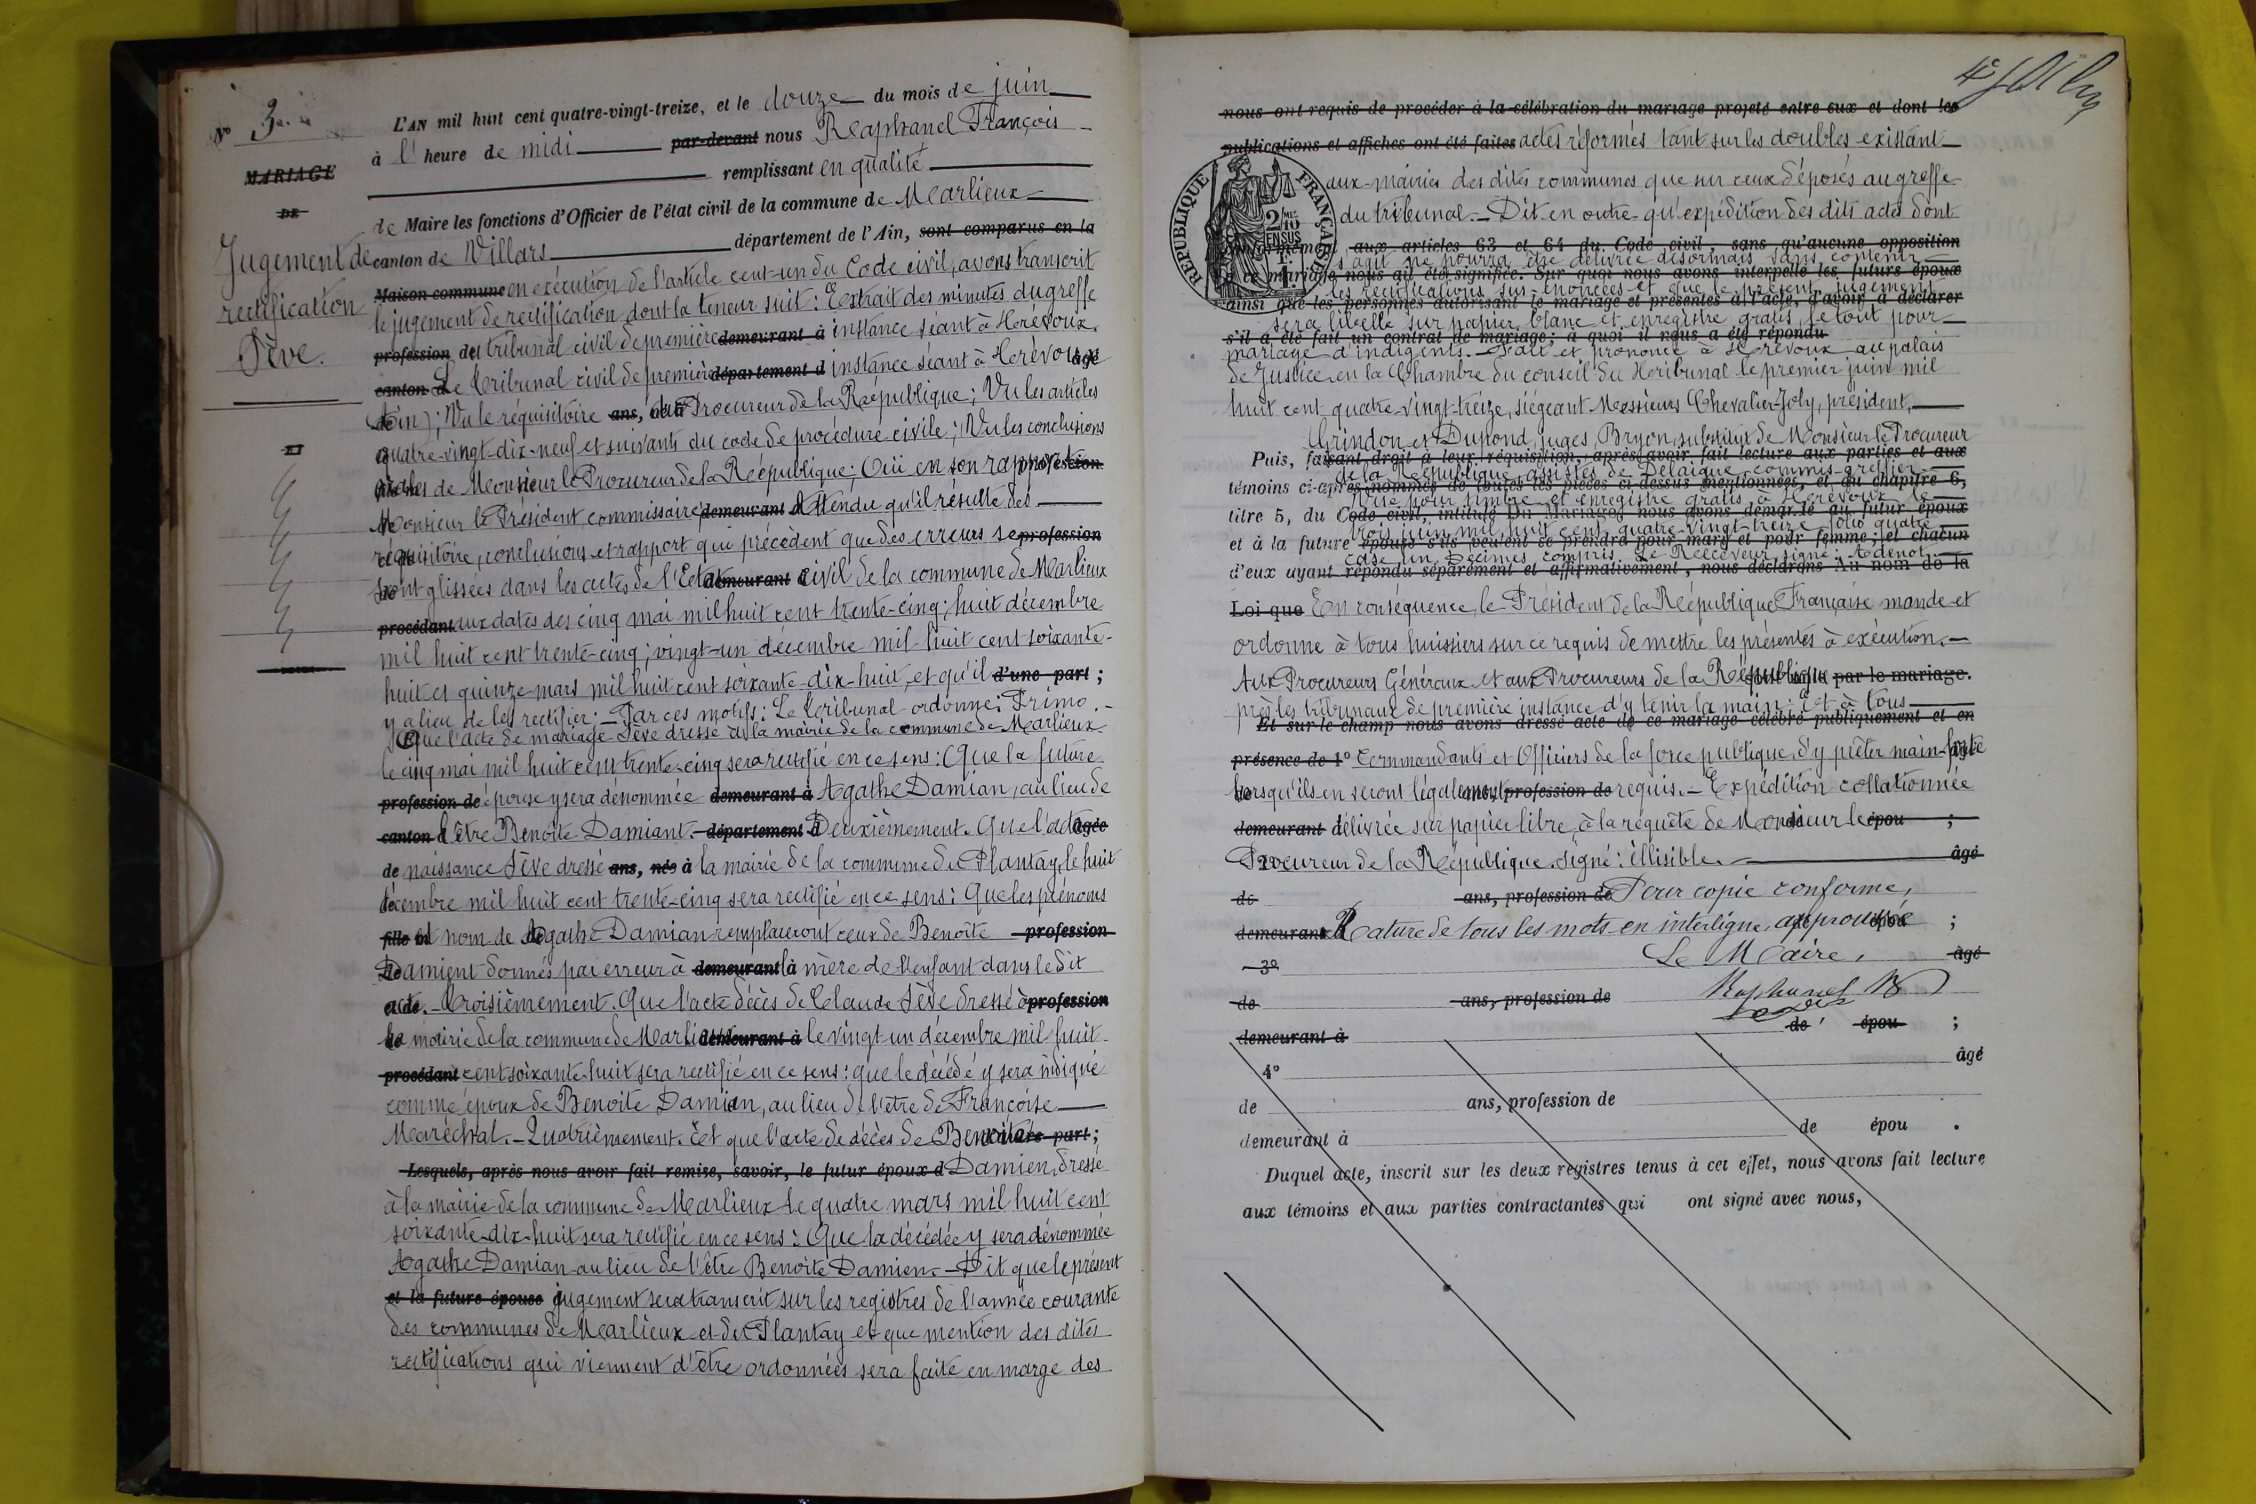 N° 3
MARIAGE
DE
Jugement de
rectification
Sève.
ET
L'AN mil huit cent quatre-vingt-treize, et le douze du mois de juin
à l'heure de midi par-devant nous Raphanel François
remplissant en qualité
de Maire les fonctions d'Officier de l'état civil de la commune de Marlieux
canton de Villars département de l'Ain, sont comparus en la
Maison commune en exécution de l'article cent-un du Code civil, avons transcrit
le jugement de rectification dont la teneur suit: Extrait des minutes du greffe
profession du tribunal civil de première demeurant à instance séant à Trévoux.
canton d Le Tribunal civil de première département d instance séant à Trévoux âgé
(Ain); Vu le réquisitoire ans, né à du Procureur de la République; Vu les articles
quatre-vingt-dix-neuf et suivants du code de procédure civile; Vu les conclusions
de Monsieur le Procureur de la République; Ouï en son rapport profession
Monsieur le Président commissaire demeurant Attendu qu'il résulte des
réquisitoire, conclusions et rapport qui précèdent que des erreurs se profession
sont glissées dans les actes de l'Etat demeurant à civil de la commune de Marlieux
procédant aux dates des cinq mai mil huit cent trente-cinq; huit décembre
mil huit cent trente-cinq; vingt-un décembre mil huit cent soixante-
huit et quinze mars mil huit cent soixante-dix-huit, et qu'il d'une part ;
y a lieu de les rectifier; - Par ces motifs: Le Tribunal ordonne: Primo. -
Que l'acte de mariage Sève dressé à la mairie de la commune de Marlieux
le cinq mai mil huit cent trente-cinq sera rectifié en ce sens: Que la future
profession de épouse y sera dénommée demeurant à Agathe Damian, au lieu de
canton d l'être Benoîte Damiant. - département d Deuxièmement. Que l'acte âgée
de naissance Sève dressé ans, née à la mairie de la commune du Plantay, le huit
décembre mil huit cent trente-cinq sera rectifié en ce sens: Que les prénoms
fille et nom de Agathe Damian remplaceront ceux de Benoîte profession
Damient donnés par erreur à demeurant à la mère de l'enfant dans le dit
acte. - Troisièmement. Que l'acte décès de Claude Sève dressé à profession
la mairie de la commune de Marlieux demeurant à le vingt un décembre mil huit
procédant cent soixante-huit sera rectifié en ce sens: que le décédé y sera indiqué
comme époux de Benoîte Damian, au lieu de l'être de Françoise
Maréchal. - Quatrièmement. et que l'acte de décès de Benoîte d'autre part ;
Lesquels, après nous avoir fait remise, savoir, le futur époux d Damien, dressé
à la mairie de la commune de Marlieux le quatre mars mil huit cent
soixante-dix-huit sera rectifié en ce sens: Que la décédée y sera dénommée
Agathe Damian au lieu de l'être Benoîte Damien. - Dit que le présent
et la future épouse jugement sera transcrit sur les registres de l'année courante
des communes de Marlieux et du Plantay et que mention des dites
rectifications qui viennent d'être ordonnées sera faite en marge des
nous ont requis de procéder à la célébration du mariage projeté entre eux et dont les
publications et affiches ont été faites actes réformés tant sur les doubles existant
aux mairies des dites communes que sur ceux déposés au greffe
du tribunal. - Dit en outre qu'expédition des dits actes dont
RÉPUBLIQUE FRANÇAISE
aux articles 63 et 64 du Code civil, sans qu'aucune opposition
s'agit ne pourra être délivrée désormais sans contenir
à ce mariage nous ait été signifiée. Sur quoi nous avons interpellé les futurs époux
les rectifications sus-énoncées et que le présent jugement
ainsi que les personnes autorisant le mariage et présentes à l'acte, d'avoir à déclarer
sera libellé sur papier blanc et enregistré gratis, le tout pour
s'il a été fait un contrat de mariage; à quoi il nous a été répondu
mariage d'indigents. - Fait et prononcé à Trévoux au palais
de Justice en la Chambre du conseil du Tribunal le premier juin mil
huit cent quatre-vingt-treize, siégeant Messieurs Chevalier-Joly, président,
Grindon et Dupond, juges, Bryon, substitut de Monsieur le Procureur
Puis, faisant droit à leur réquisition, après avoir fait lecture aux parties et aux
de la République, assistés de Delaigue, commis-greffier
témoins ci-après nommés de toutes les pièces ci-dessus mentionnées, et du chapitre 6,
Visé pour timbre et enregistré gratis, à Trévoux, le
titre 5, du Code civil, intitulé Du Mariage, nous avons demandé au futur époux
trois juin mil huit cent quatre-vingt-treize, folio quatre
et à la future épouse s'ils veulent se prendre pour mari et pour femme; et chacun
case un Décimes compris. Le Receveur, signé: Adenot.
d'eux ayant répondu séparément et affirmativement, nous déclarons Au nom de la
Loi que En conséquence, le Président de la République Française mande et
ordonne à tous huissiers sur ce requis de mettre les présentes à exécution. -
Aux Procureurs Généraux et aux Procureurs de la République par le mariage.
près les tribunaux de première instance d'y tenir la main; et à tous
Et sur-le-champ nous avons dressé acte de ce mariage célébré publiquement et en
présence de 1° Commandants et Officiers de la force publique, d'y prêter main-forte
lorsqu'ils en seront légalement profession de requis. - Expédition collationnée
demeurant délivrée sur papier libre, à la requête de Monsieur le épou ;
Procureur de la République. Signé: illisible. âgé
de ans, profession de Pour copie conforme,
demeurant à Rature de tous les mots en interligne approuvée ;
3° Le Maire, âgé
de ans, profession de Raphanel
demeurant à de épou ;
4° âgé
de ans, profession de
demeurant à de épou .
Duquel acte, inscrit sur les deux registres tenus à cet effet, nous avons fait lecture
aux témoins et aux parties contractantes qui ont signé avec nous,